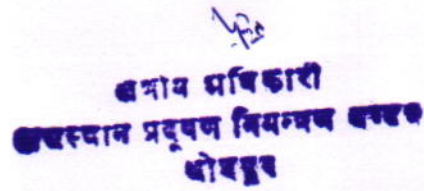 क्षेत्रीय अधिकारी
राजस्थान प्रदूषण नियन्त्रण मण्डल